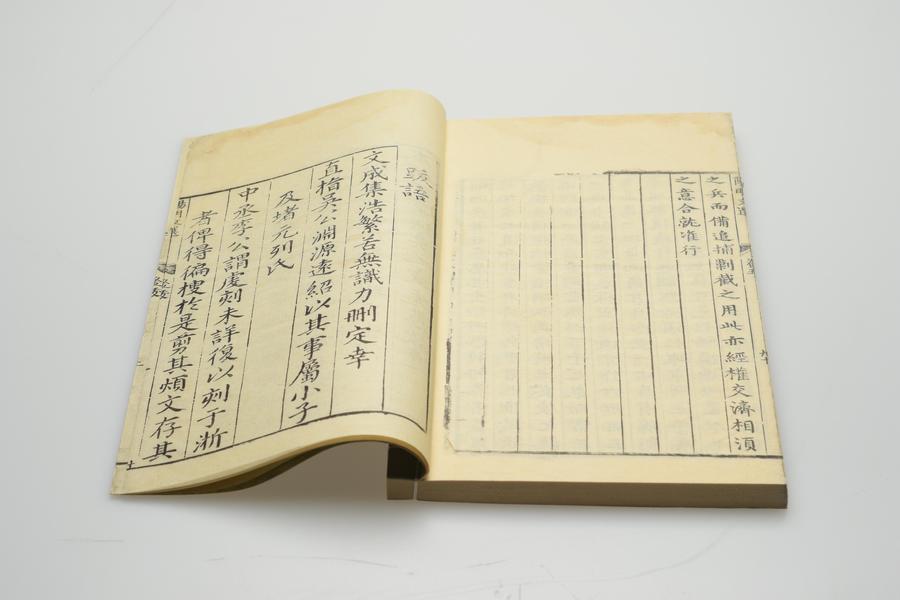 之兵而備追捕剿截之用此亦經權交濟相須
之意合就准行
跋語
文成集浩繁苦無識力刪定幸
直指吳公淵源遠紹以其事屬小子
及堵列氏
中丞李公謂虔刻未詳復以刻于浙
者俾得偏搜於是剪其煩文存其